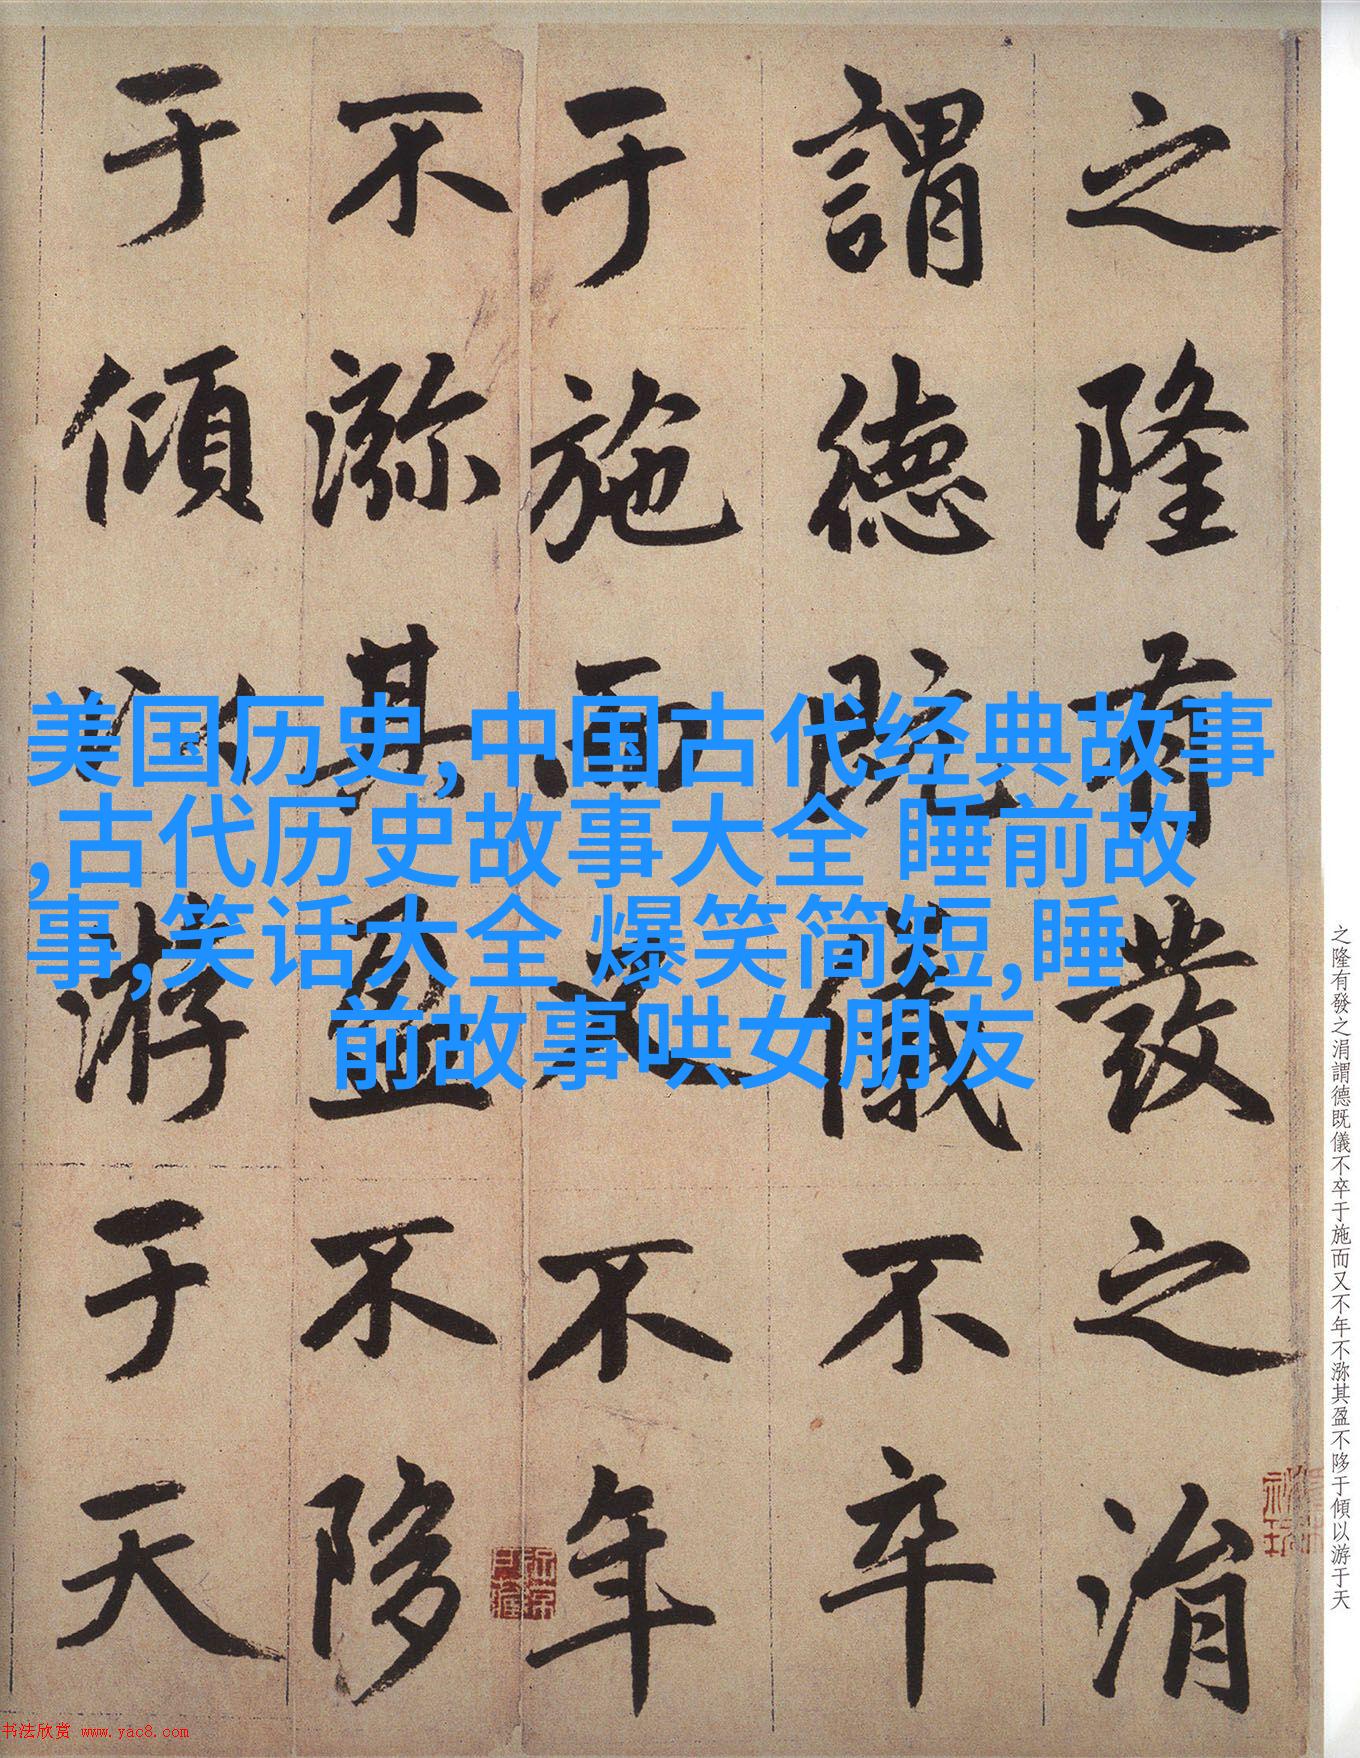 之隆有發之涓
謂德既儀不卒
于施而又不年
不㳽其盈不陊
于傾以游于天
美国历史,中国古代经典故事
,古代历史故事大全 睡前故
事,笑话大全 爆笑简短,睡
前故事哄女朋友
之隆有發之涓謂德既儀不卒于施而又不年不㳽其盈不陊于傾以游于天
书法欣赏 www.yac8.com